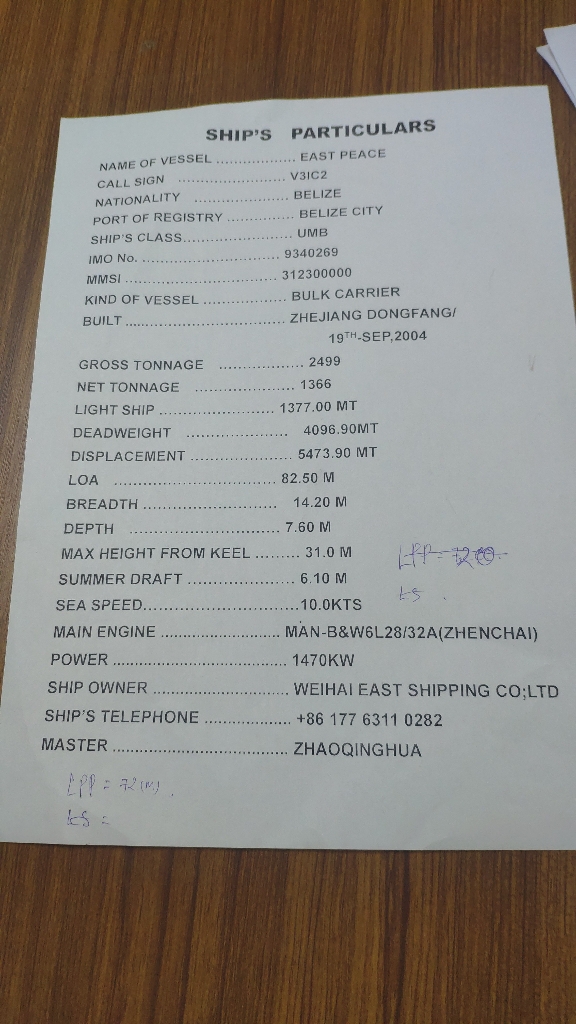 SHIP'S PARTICULARS
NAME OF VESSEL .................. EAST PEACE
CALL SIGN ........................ V3IC2
NATIONALITY ..................... BELIZE
PORT OF REGISTRY ............... BELIZE CITY
SHIP'S CLASS......................... UMB
IMO No. ............................... 9340269
MMSI ................................... 312300000
KIND OF VESSEL ................... BULK CARRIER
BUILT ..................................... ZHEJIANG DONGFANG/
19TH-SEP,2004
GROSS TONNAGE ................... 2499
NET TONNAGE ...................... 1366
LIGHT SHIP .......................... 1377.00 MT
DEADWEIGHT ....................... 4096.90MT
DISPLACEMENT ....................... 5473.90 MT
LOA ..................................... 82.50 M
BREADTH ............................... 14.20 M
DEPTH .................................. 7.60 M
MAX HEIGHT FROM KEEL ......... 31.0 M
LPP=
SUMMER DRAFT ........................ 6.10 M
SEA SPEED...................................10.0KTS
MAIN ENGINE ........................... MAN-B&W6L28/32A(ZHENCHAI)
POWER ....................................... 1470KW
SHIP OWNER ............................... WEIHAI EAST SHIPPING CO;LTD
SHIP'S TELEPHONE ................... +86 177 6311 0282
MASTER ....................................... ZHAOQINGHUA
LPP = 72 (M).